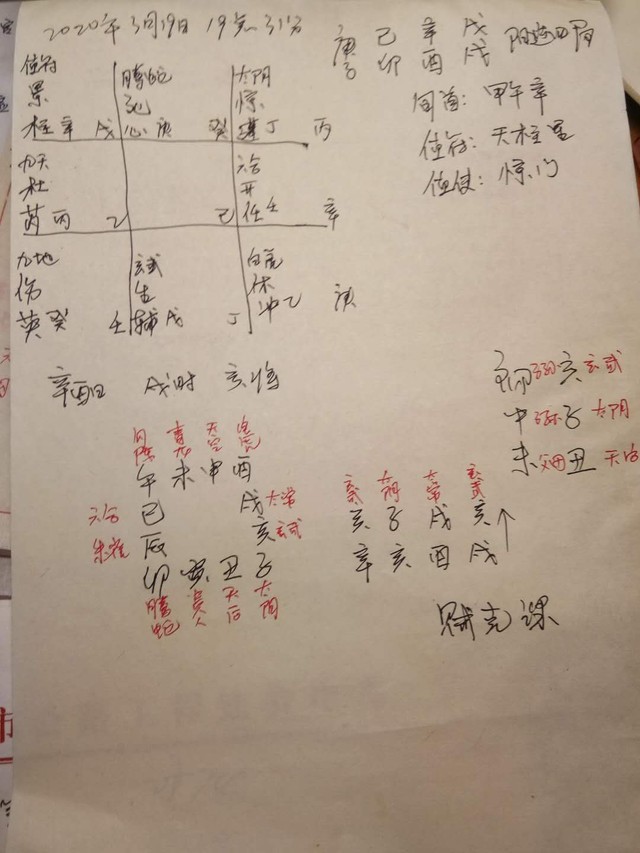 2020年3月19日 19点31分
庚 己 辛 戌
子 卯 酉 戌 阳遁四局
旬首: 甲午辛
值符: 天柱星
值使: 惊门
值符 腾蛇 太阴
景 死 惊
柱辛 戌 心庚 癸 蓬丁 丙
九天 六合
杜 开
芮丙 乙 己 任壬 辛
九地 玄武 白虎
伤 生 休
英癸 壬 辅戌 丁 冲乙 庚
辛酉日 戌时 亥将
亥 玄武
中 子 太阴
未 丑 天后
勾陈 青龙 天空 白虎
午 未 申 酉
六合 巳 戌 太常
朱雀 辰 亥 玄武
卯 寅 丑 子
腾蛇 贵人 天后 太阴
玄武 太阴 太常 玄武
亥 子 戌 亥
辛 亥 酉 戌
贼克课